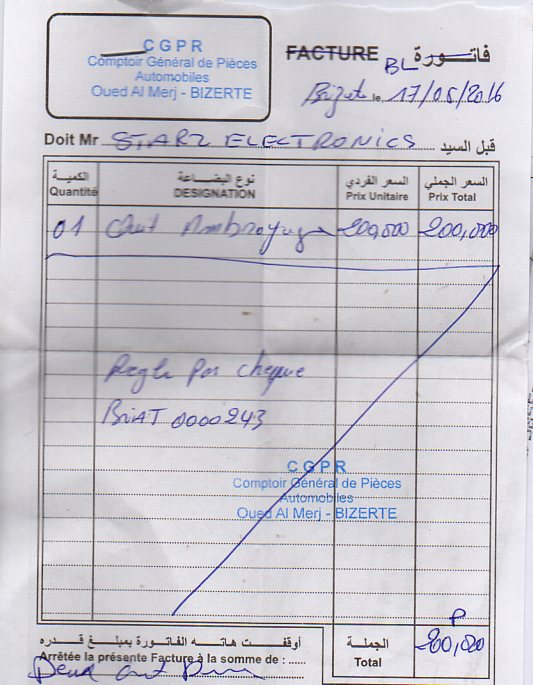 CGPR
Comptoir Général de Pièces
Automobiles
Oued Al Merj - BIZERTE
FACTURE BL فاتورة
Bizerte le 17/05/2016
Doit Mr STARZ ELECTRONICS قبل السيد
الكمية نوع البضاعة السعر الفردي السعر الجملي
Quantité DESIGNATION Prix Unitaire Prix Total
01 Ambrayage 200,000 200,000
Regle Par cheque
BIAT 0000243
CGPR
Comptoir Général de Pièces
Automobiles
Oued Al Merj - BIZERTE
أوقفت هاته الفاتورة بمبلغ قدره
Arrêtée la présente Facture à la somme de : .....
Deux cent
الجملة
Total